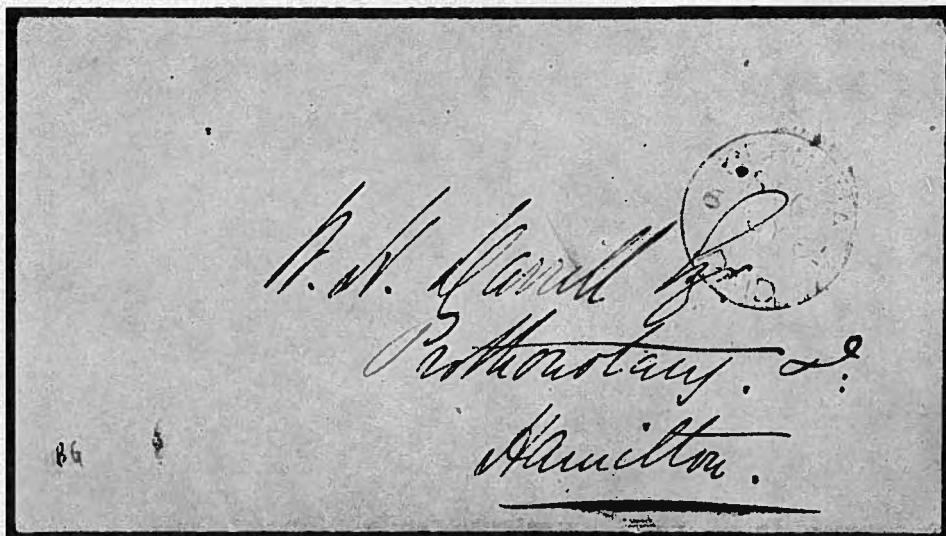 Darrell Esqr
Prothonotary. &c:
Hamilton.
BG